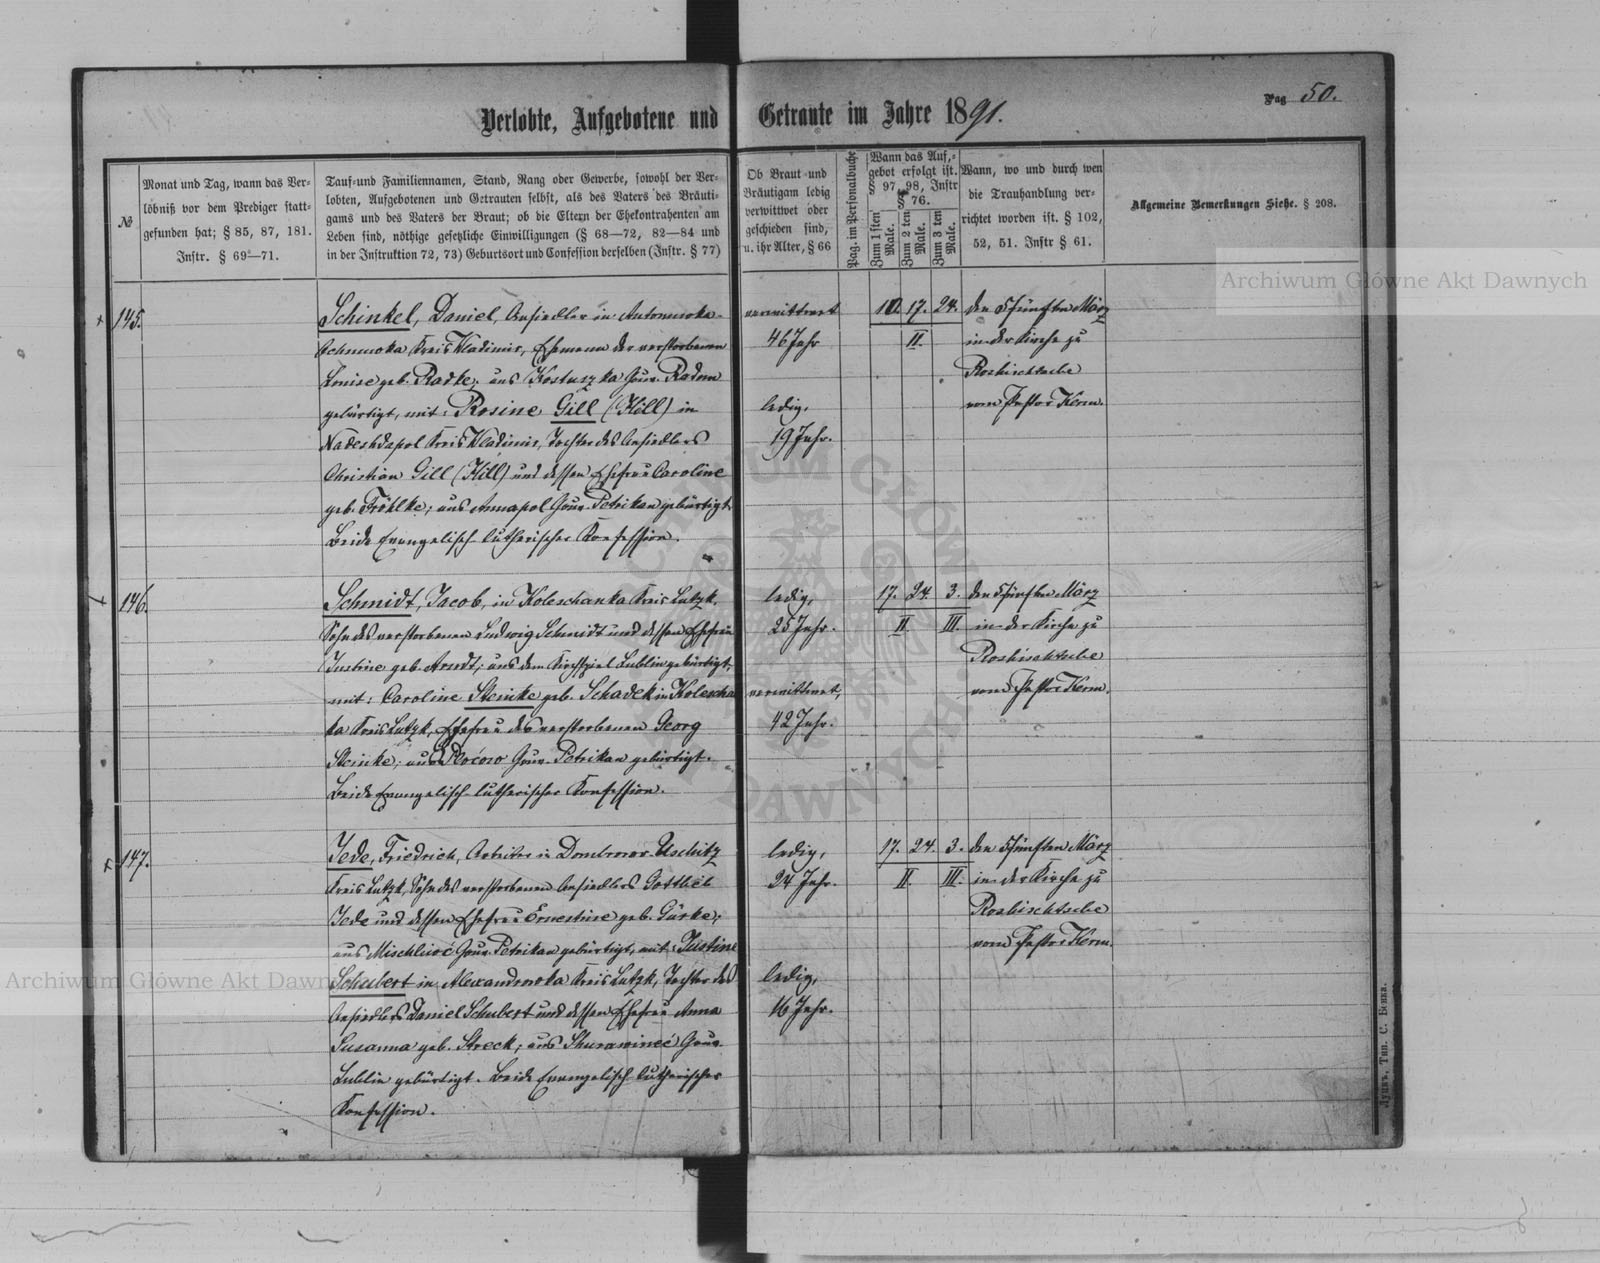 Verlobte, Aufgebotene und Getraute im Jahre 1891.
Pag 50.
№
Monat und Tag, wann das Ver-
löbniß vor dem Prediger statt-
gefunden hat; § 85, 87, 181.
Instr. § 69—71.
Tauf- und Familiennamen, Stand, Rang oder Gewerbe, sowohl der Ver-
lobten, Aufgebotenen und Getrauten selbst, als des Vaters des Bräuti-
gams und des Vaters der Braut; ob die Eltern der Ehekontrahenten am
Leben sind, nöthige gesetzliche Einwilligungen (§ 68—72, 82—84 und
in der Instruktion 72, 73) Geburtsort und Confession derselben (Instr. § 77)
Ob Braut und
Bräutigam ledig
verwittwet oder
geschieden sind,
u. ihr Alter, § 66
Pag. im Personalbuche
Wann das Auf-
gebot erfolgt ist.
§ 97, 98, Instr
§ 76.
Zum 1 sten Male.
Zum 2 ten Male.
Zum 3 ten Male.
Wann, wo und durch wen
die Trauhandlung ver-
richtet worden ist. § 102,
52, 51. Instr § 61.
Allgemeine Bemerkungen Siehe. § 208.
145.
Schinkel, Daniel, Ansiedler in Antonowka-
Kreis Wladimir, Ehemann der verstorbenen
Louise geb. Radke; aus Kostuszka Gouv. Radom
gebürtigt, mit: Rosine Gill (Hill) in
Nadeshdapol Kreis Wladimir, Tochter des Ansiedlers
Christian Gill (Hill) und dessen Ehefrau Caroline
geb. Fröhlke; aus Annapol Gouv. Petrikau gebürtigt.
Beide Evangelisch-lutherischer Konfession.
verwittwet
46 Jahr
ledig,
19 Jahr.
10. 17. 24.
II.
den 5 fünften März
in der Kirche zu
Roshischtsche
vom Pastor Kerm.
146.
Schmidt, Jacob, in Koleschanka Kreis Lutzk.
Sohn des verstorbenen Ludwig Schmidt und dessen Ehefrau
Justine geb. Arndt; aus dem Kirchspiel Lublin gebürtigt,
mit: Caroline Steinke geb. Schadek in Kolescha
ka Kreis Lutzk, Ehefrau des verstorbenen Georg
Steinke; aus Gouv. Petrikau gebürtigt.
Beide Evangelisch-lutherischer Konfession.
ledig,
25 Jahr.
verwittwet,
42 Jahr.
17. 24. 3.
II III.
den 5 fünften März
in der Kirche zu
Roshischtsche
vom Pastor Kerm.
147.
Jede, Friedrich, Arbeiter in Dombrowa-Uschitz
Kreis Lutzk, Sohn des verstorbenen Ansiedlers Gottlieb
Jede und dessen Ehefrau Ernestine geb. Gürke;
aus Gouv. Petrikau gebürtigt, mit: Justine
Schubert in Alexandrowka Kreis Lutzk, Tochter des
Ansiedlers Daniel Schubert und dessen Ehefrau Anna
Susanna geb. Streck; aus Shurawineć Gouv.
Lublin gebürtigt. Beide Evangelisch-lutherischer
Konfession.
ledig,
24 Jahr.
ledig,
16 Jahr.
17. 24. 3.
II. III.
den 5 fünften März
in der Kirche zu
Roshischtsche
vom Pastor Kerm.
Луцкъ, Тип. С. Бенка.
Archiwum Główne Akt Dawnych
Archiwum Główne Akt Dawnych